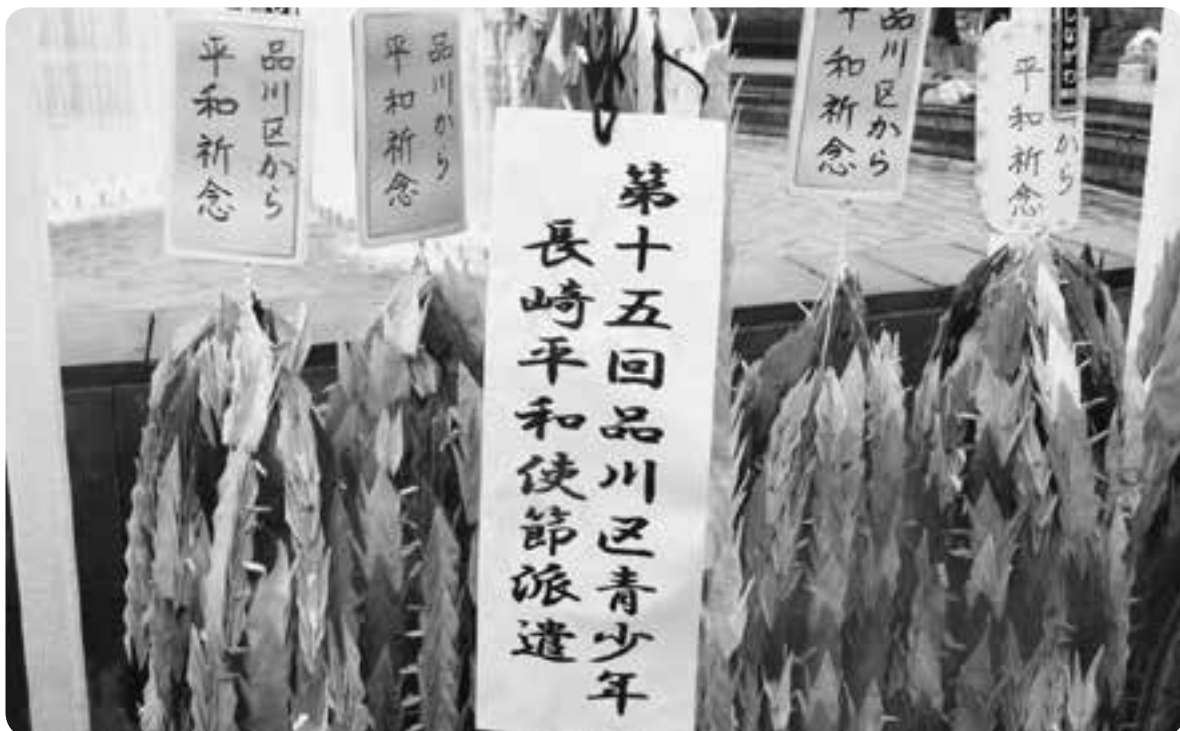 品川区から
平和祈念
品川から
平和祈念
第十五回品川区青少年
長崎平和使節派遣
品川区から
平和祈念
から
平和祈念